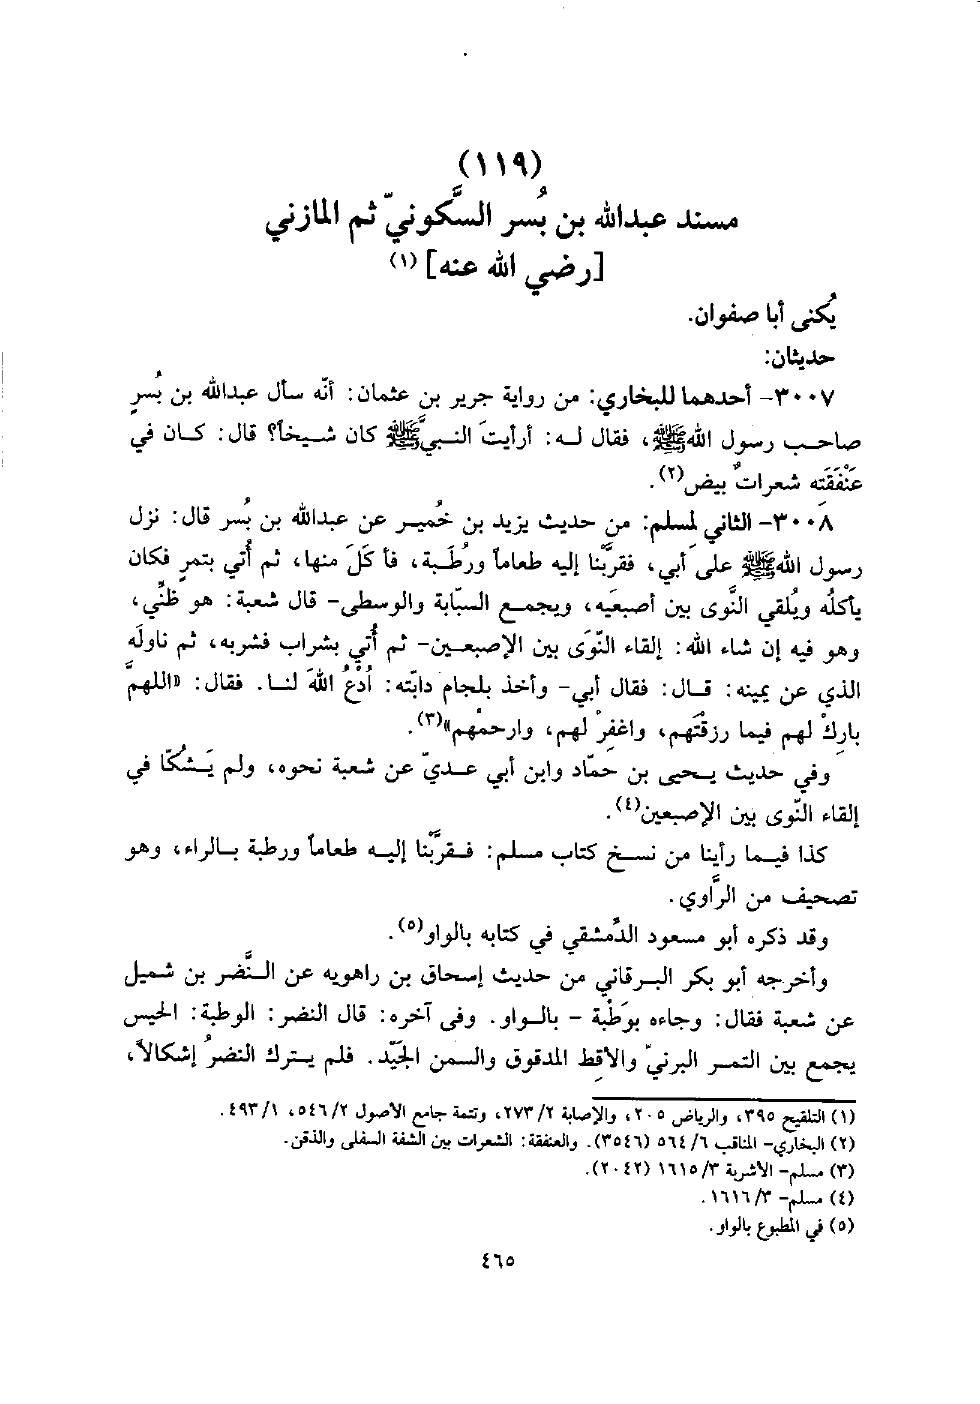 (١١٩)
مسند عبدالله بن بُسر السَّكونيّ ثم المازني
[رضي الله عنه] (١)
يُكنى أبا صفوان.
حديثان:
٣٠٠٧- أحدهما للبخاري: من رواية جرير بن عثمان: أنّه سأل عبدالله بن بُسرٍ
صاحب رسول الله ﷺ، فقال له: أرأيتَ النبيَّ ﷺ كان شيخاً؟ قال: كان في
عَنْفَقَتِه شعراتٌ بيض(٢).
٣٠٠٨- الثاني لمسلم: من حديث يزيد بن خُمير عن عبدالله بن بُسر قال: نزل
رسول الله ﷺ على أبي، فقرَّبْنا إليه طعاماً ورُطَبة، فأكَلَ منها، ثم أُتي بتمرٍ فكان
يأكلُه ويُلقي النَّوى بين أصبعَيه، ويجمع السبّابة والوسطى- قال شعبة: هو ظنِّي،
وهو فيه إن شاء الله: إلقاء النَّوَى بين الإصبعين- ثم أُتي بشراب فشربه، ثم ناولَه
الذي عن يمينه: قال: فقال أبي- وأخذ بلجام دابّته: اُدْعُ اللهَ لنا. فقال: «اللهمَّ
بارِكْ لهم فيما رزقْتَهم، واغفِرْ لهم، وارحمْهم»(٣).
وفي حديث يحيى بن حمّاد وابن أبي عديّ عن شعبة نحوه، ولم يَشُكّا في
إلقاء النّوى بين الإصبعين(٤).
كذا فيما رأينا من نسخ كتاب مسلم: فقرَّبْنا إليه طعاماً ورطبة بالراء، وهو
تصحيف من الرَّاوي.
وقد ذكره أبو مسعود الدِّمشقي في كتابه بالواو(٥).
وأخرجه أبو بكر البرقاني من حديث إسحاق بن راهويه عن النَّضر بن شميل
عن شعبة فقال: وجاءه بوَطْبة - بالواو. وفى آخره: قال النضر: الوطبة: الحَيس
يجمع بين التمر البرنيّ والأقِط المدقوق والسمن الجيّد. فلم يترك النضرُ إشكالاً،
(١) التلقيح ٣٩٥، والرياض ٢٠٥، والإصابة ٢/ ٢٧٣، وتتمة جامع الأصول ٢/ ٥٤٦، ١/ ٤٩٣.
(٢) البخاري- المناقب ٦/ ٥٦٤ (٣٥٤٦). والعنفقة: الشعرات بين الشفة السفلى والذقن.
(٣) مسلم- الأشربة ٣/ ١٦١٥ (٢٠٤٢).
(٤) مسلم- ٣/ ١٦١٦.
(٥) في المطبوع بالواو.
٤٦٥